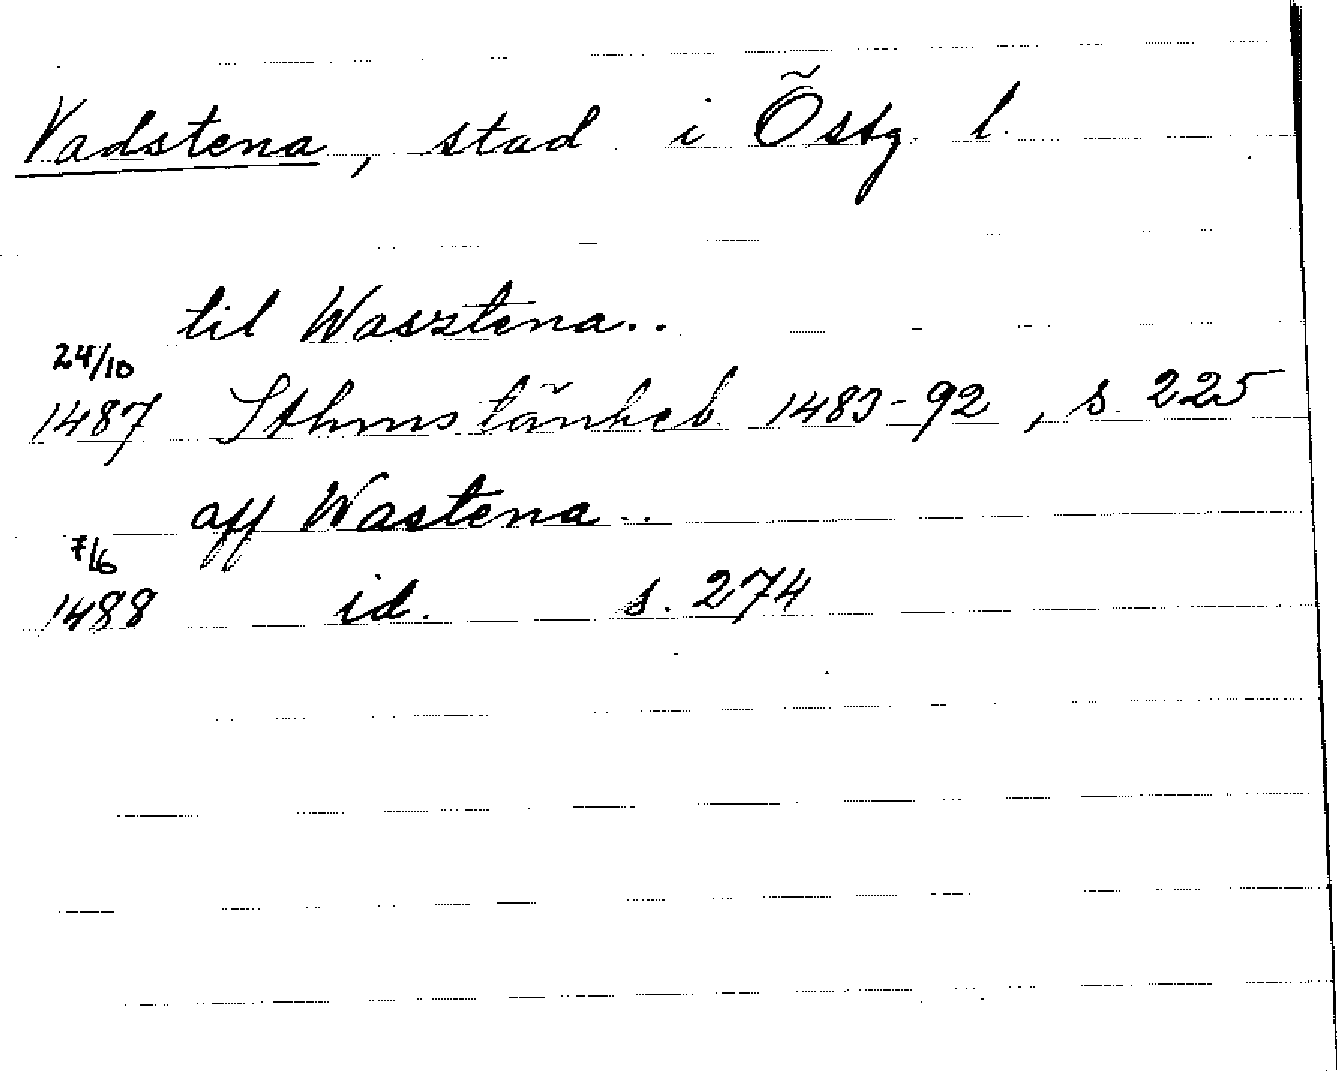 Vadstena, stad i Östg l.
til Wasztena..
24/10
1487 Sthms tänkeb 1483-92, s 225
aff Wastena..
7/6
1488 id. s. 274